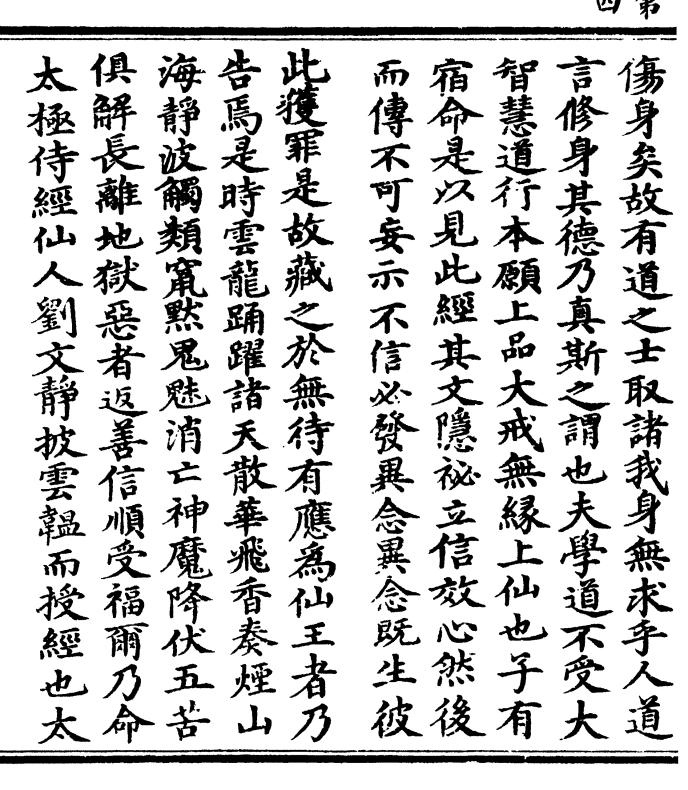 第
四
傷身矣故有道之士取諸我身無求乎人道
言修身其德乃真斯之謂也夫學道不受大
智慧道行本願上品大戒無緣上仙也子有
宿命是以見此經其文隱祕立信效心然後
而傳不可妄示不信必發異念異念既生彼
此獲罪是故藏之於無待有應為仙王者乃
告焉是時雲龍踊躍諸天散華飛香奏煙山
海靜波觸類竄默鬼魅消亡神魔降伏五苦
俱解長離地獄惡者返善信順受福爾乃命
太極侍經仙人劉文靜披雲韞而授經也太